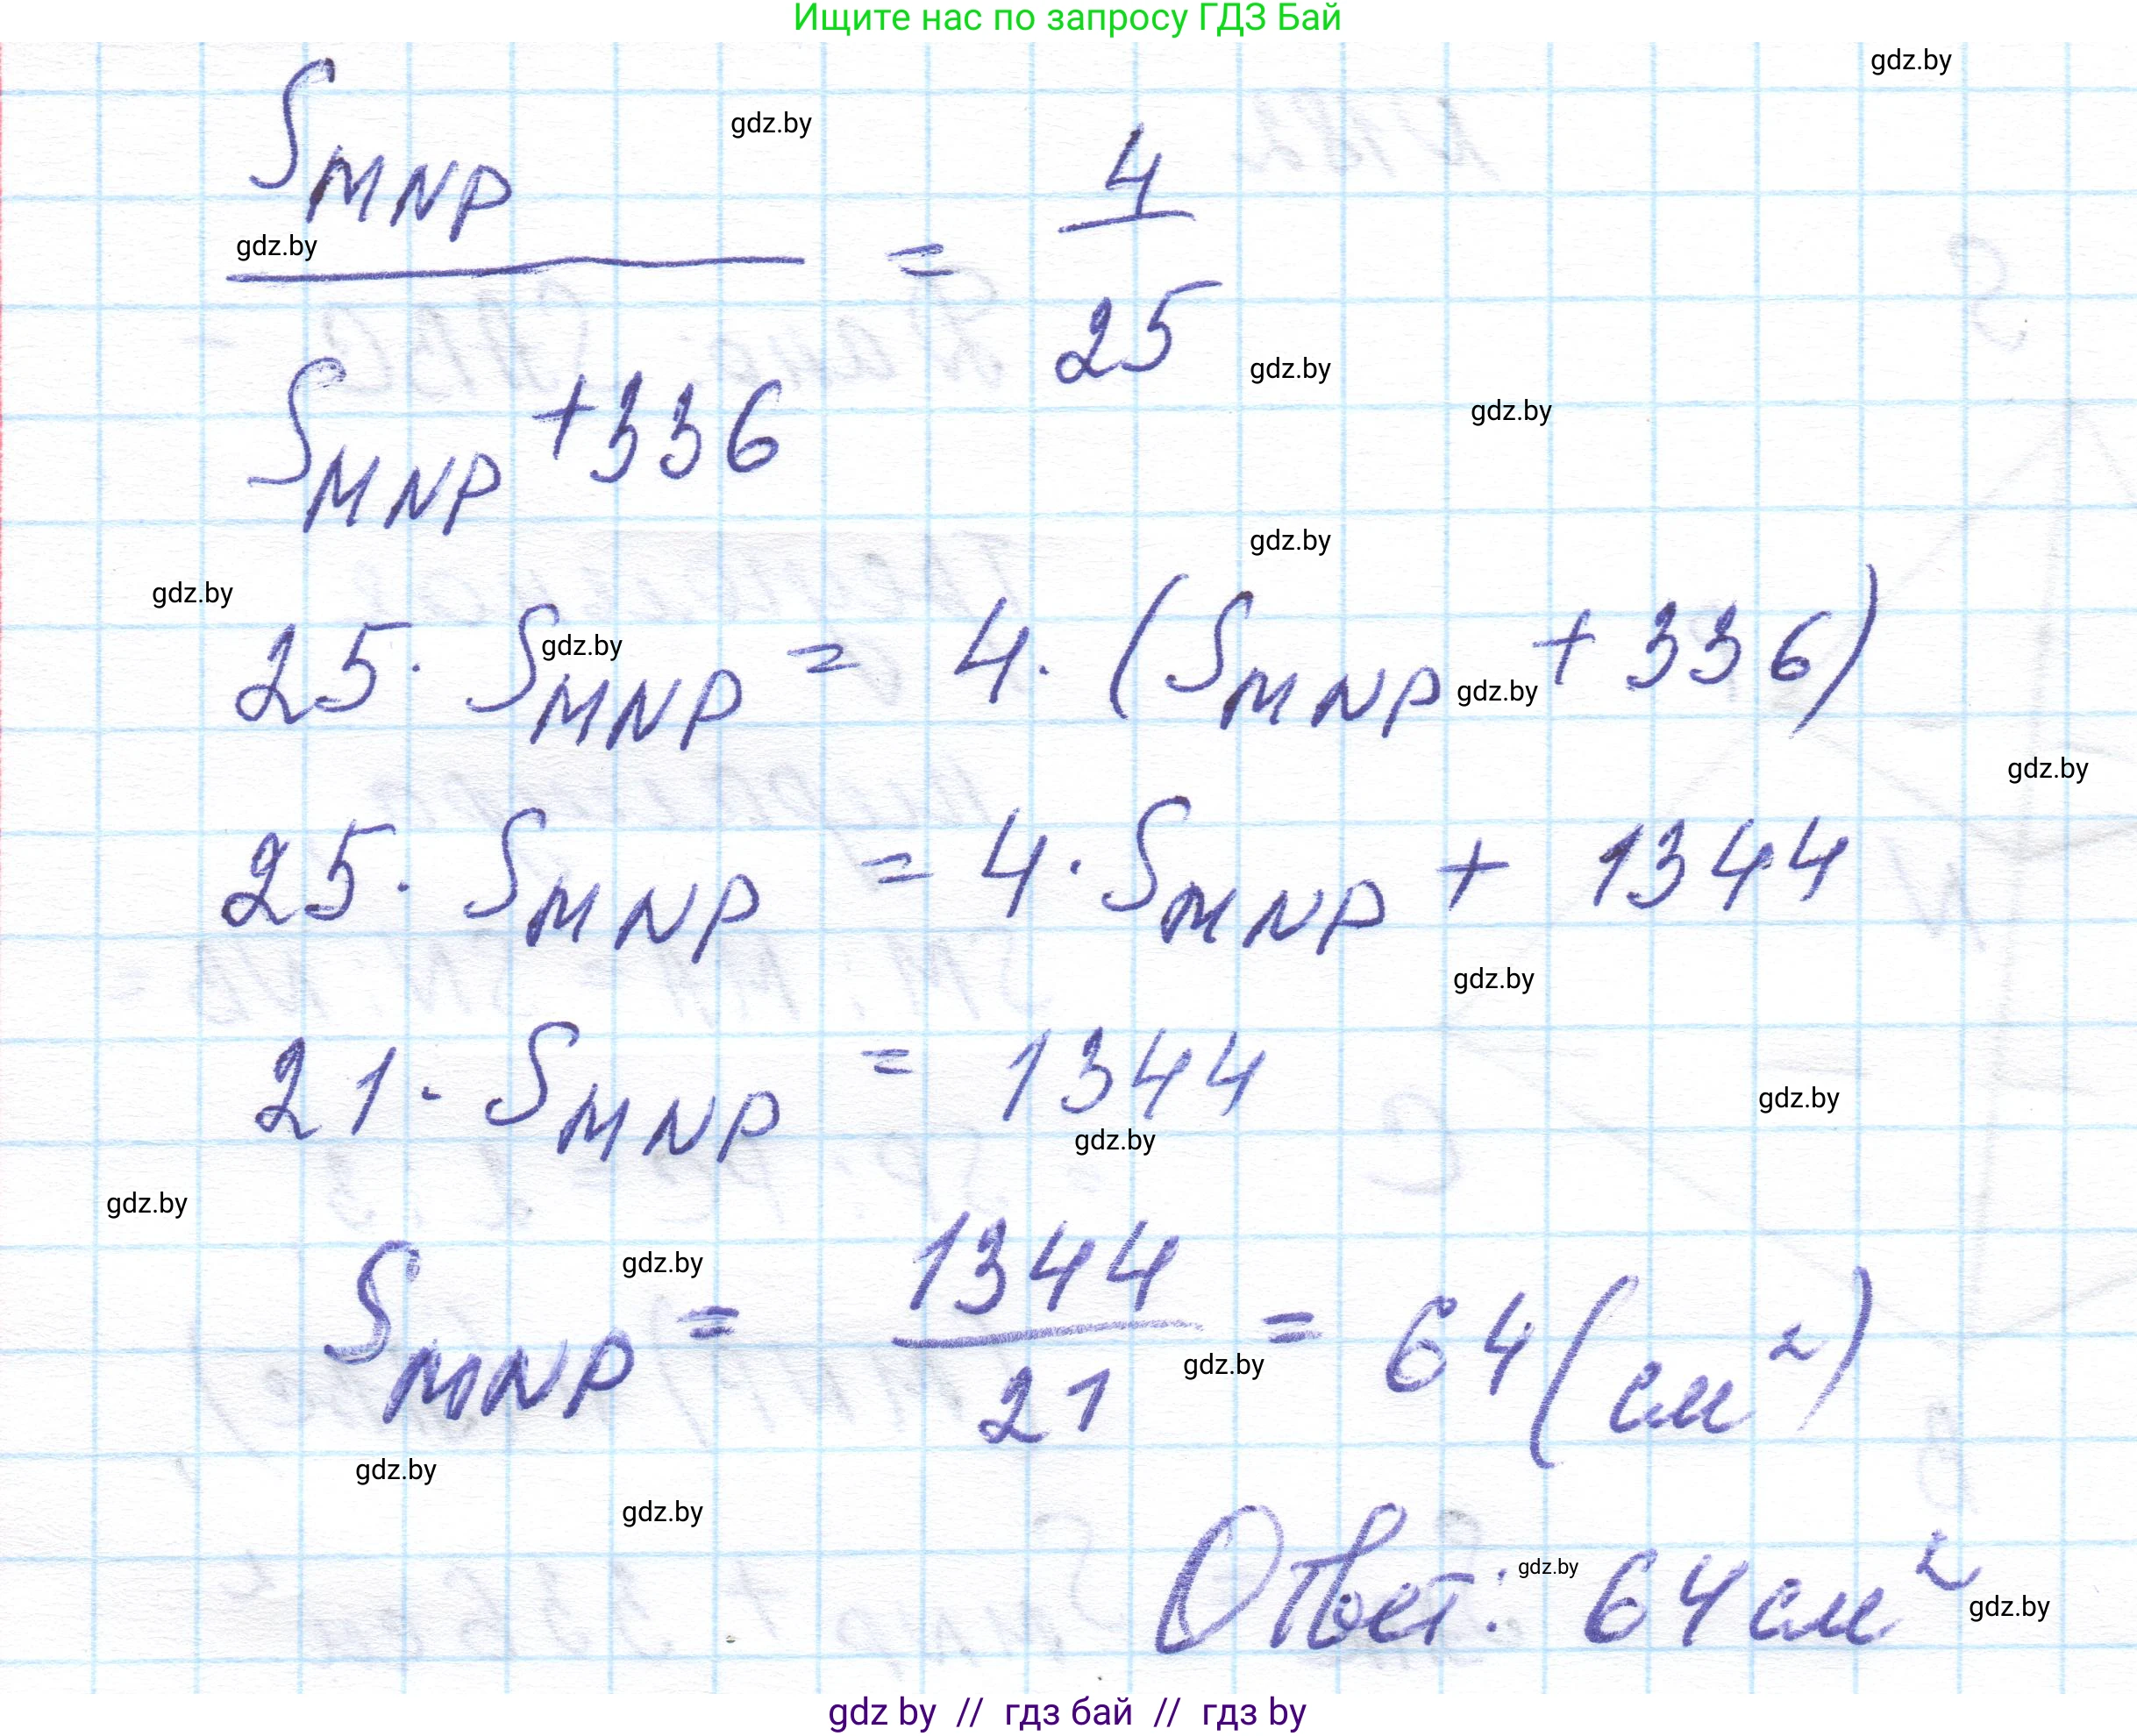 Ищите нас по запросу ГДЗ Бай
gdz.by
gdz.by
S_MNP / (S_MNP + 336) = 4/25
gdz.by
gdz.by
gdz.by
gdz.by
gdz.by
25 · S_MNP = 4 · (S_MNP + 336)
gdz.by
gdz.by
gdz.by
25 · S_MNP = 4 · S_MNP + 1344
gdz.by
21 · S_MNP = 1344
gdz.by
gdz.by
gdz.by
S_MNP = 1344/21 = 64 (см²)
gdz.by
gdz.by
gdz.by
gdz.by
Ответ: 64 см²
gdz.by
gdz.by
gdz by // гдз бай // гдз by